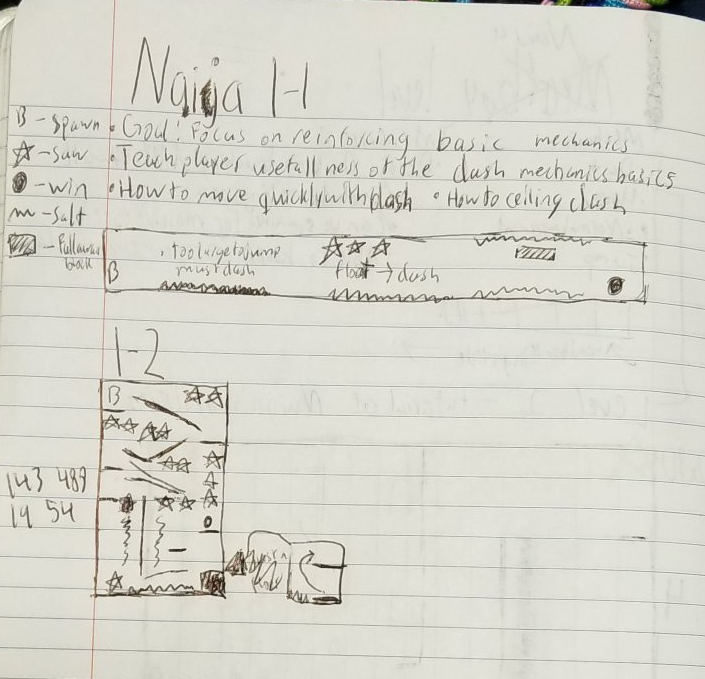 Naija 1-1
B - Spawn
• Goal: Focus on reinforcing basic mechanics
☆ - Saw
• Teach player usefull ness of the dash mechanics basics
● - win
• How to move quickly with dash • How to ceiling dash
- Salt
block
• too large to jump
must dash
B
float → dash
1-2
B
143 489
14 54